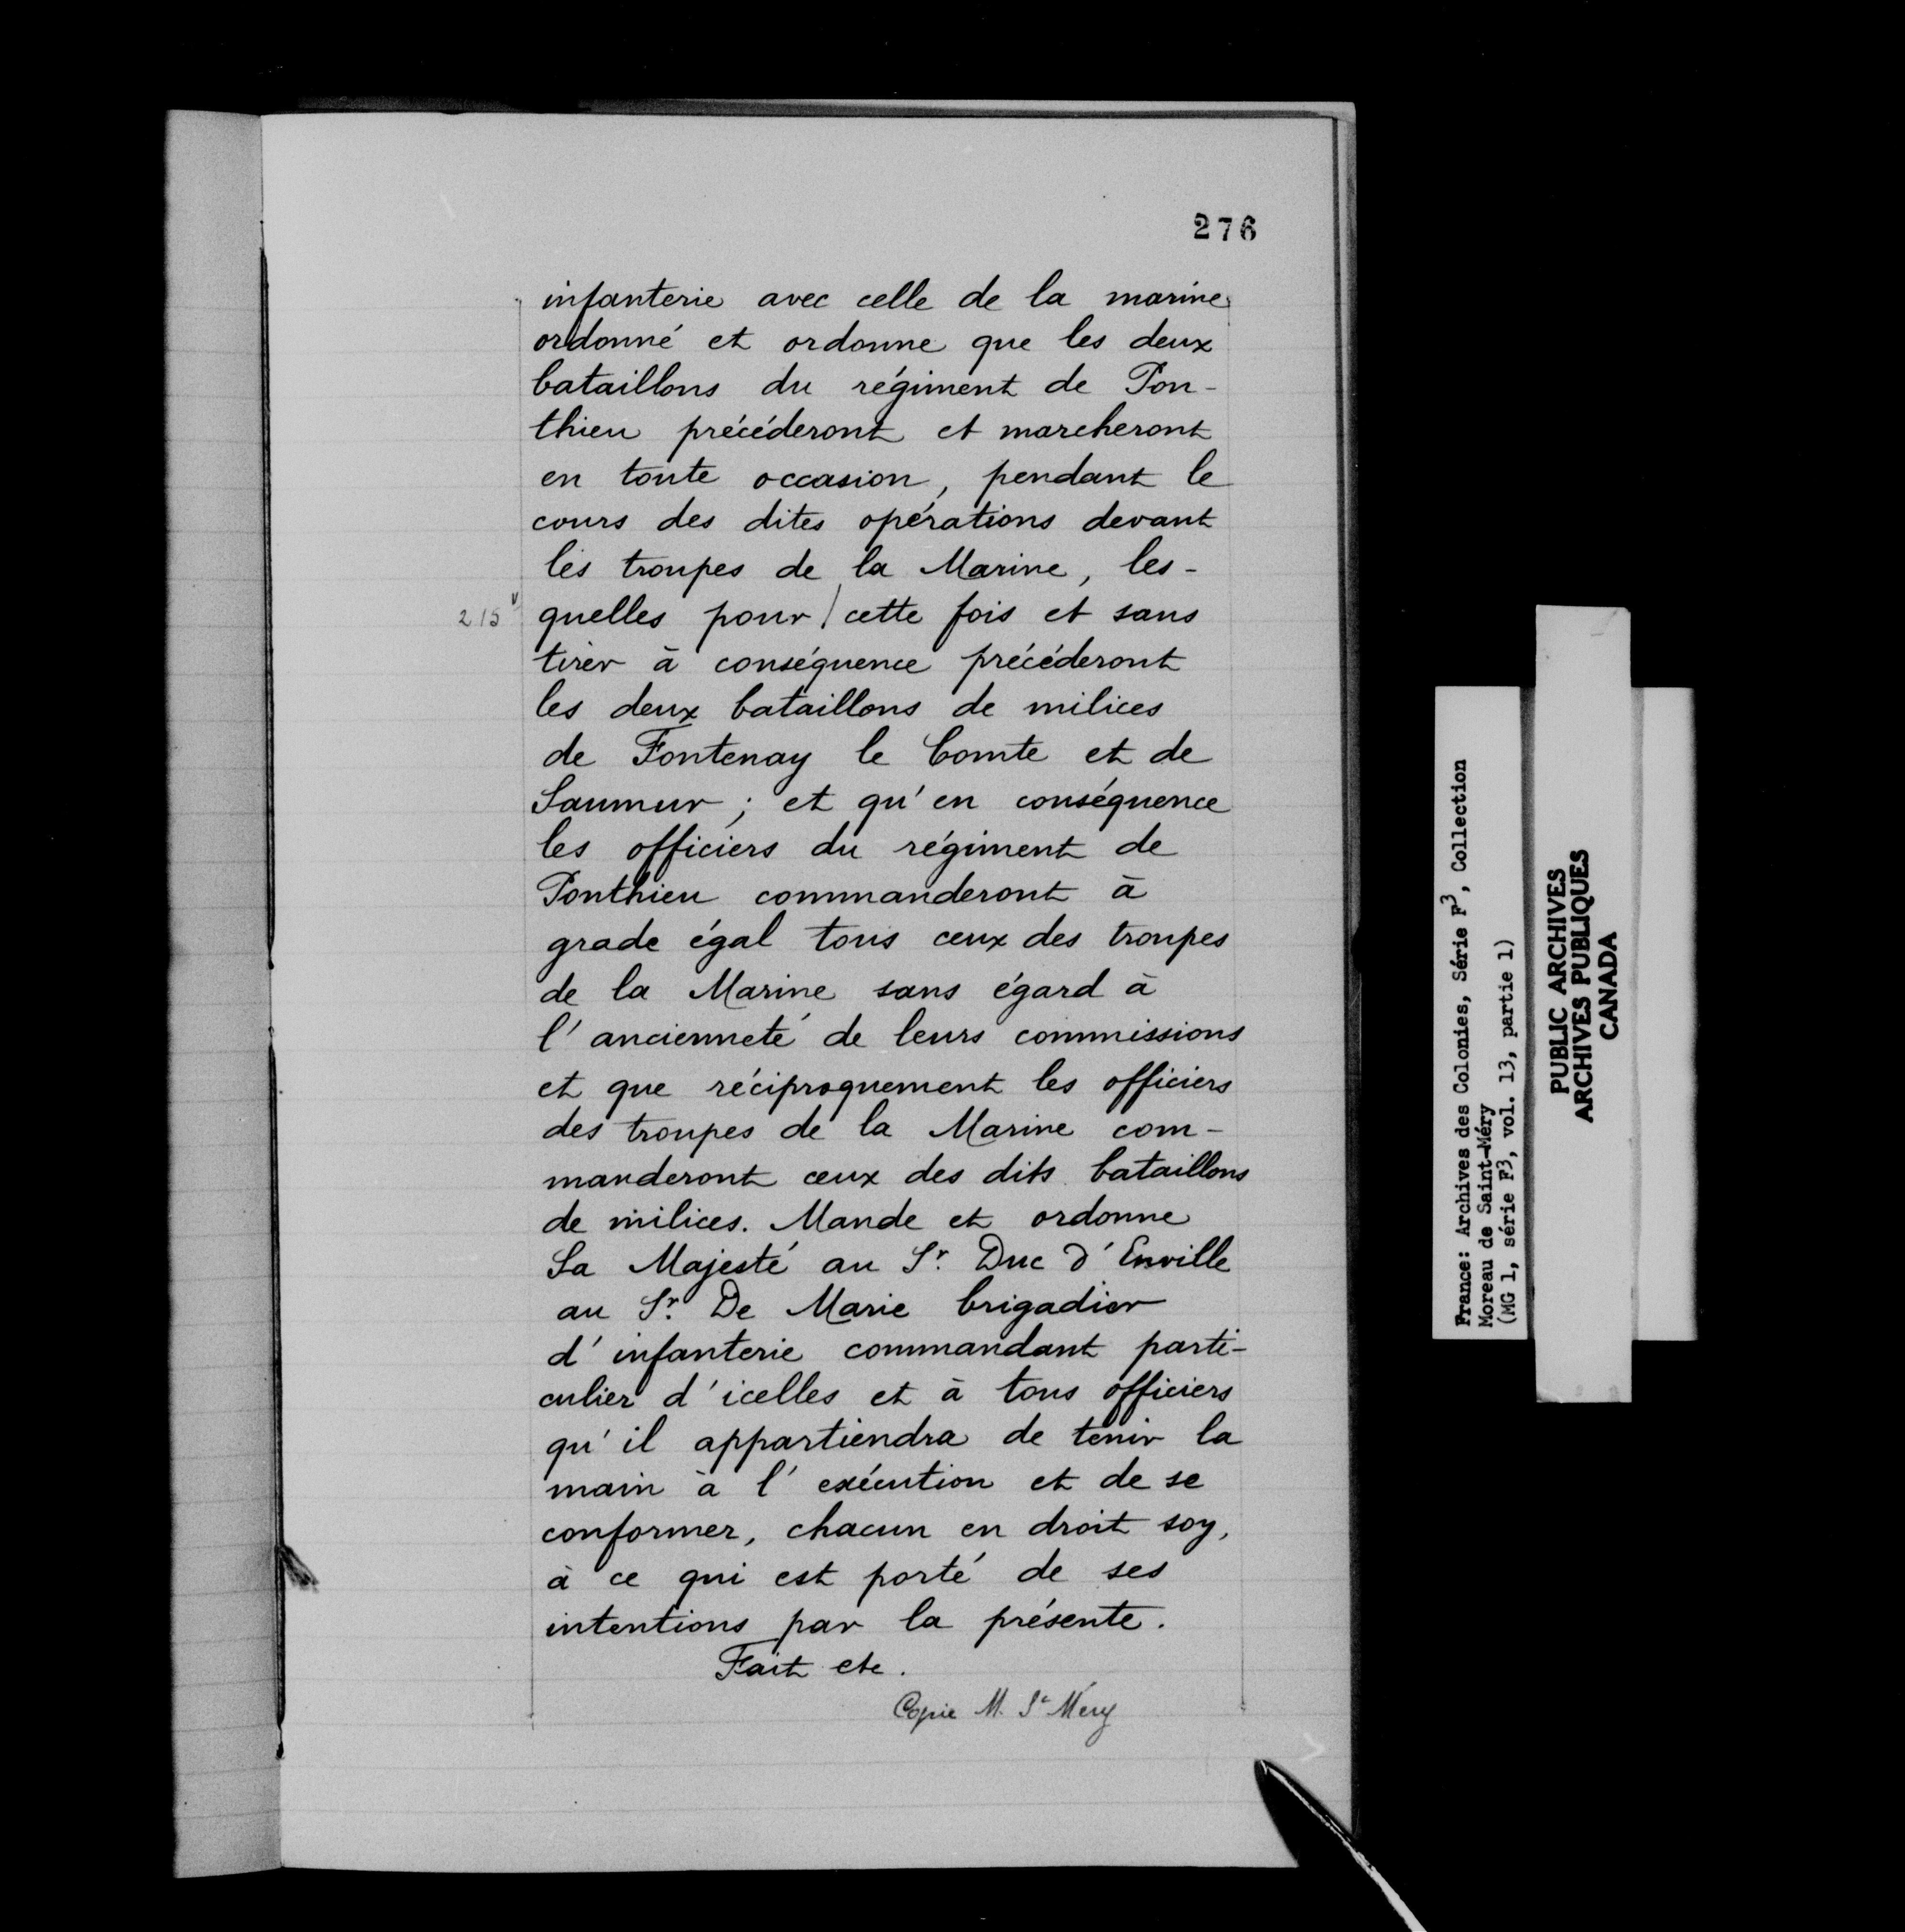 276
infanterie avec celle de la marine
ordonné et ordonne que les deux
bataillons du régiment de Pon-
thieu précéderont et marcheront
en toute occasion, pendant le
cours des dites opérations devant
les troupes de la Marine, les-
215v quelles pour / cette fois et sans
tirer à conséquence précéderont
les deux bataillons de milices
de Fontenay le Comte et de
Saumur ; et qu'en conséquence
les officiers du régiment de
Ponthieu commanderont à
grade égal tous ceux des troupes
de la Marine sans égard à
l'ancienneté de leurs commissions
et que réciproquement les officiers
des troupes de la Marine com-
manderont ceux des dits bataillons
de milices. Mande et ordonne
Sa Majesté au Sr. Duc d'Enville
au Sr. De Marie brigadier
d'infanterie commandant parti-
culier d'icelles et à tous officiers
qu'il appartiendra de tenir la
main à l'exécution et de se
conformer, chacun en droit soy,
à ce qui est porté de ses
intentions par la présente.
Fait etc.
Copie M. St Méry
France: Archives des Colonies, Série F3, Collection
Moreau de Saint-Méry
(MG 1, série F3, vol. 13, partie 1)
PUBLIC ARCHIVES
ARCHIVES PUBLIQUES
CANADA